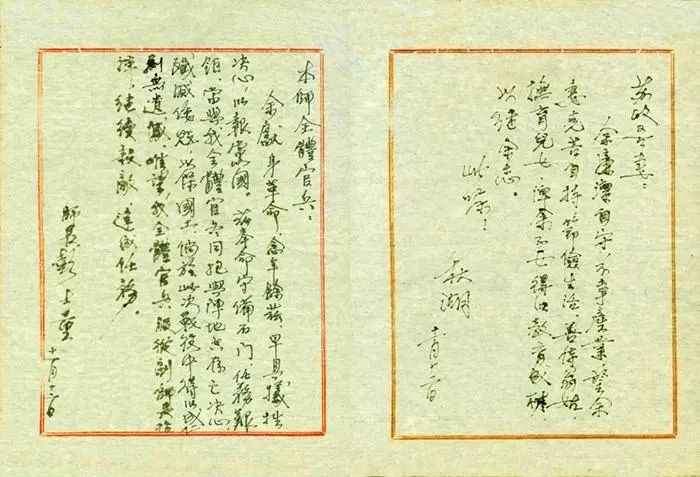 政吾妻：
余廉潔自守，不事產業，望余
妻克苦自持，節儉生活，善侍翁姑，
撫育兒女，俾余子女得以教育成材，
以繼余志。
此囑！
秋湖 十一月十二日
本師全體官兵：
余獻身革命，念年餘茲，早具犧牲
決心，以報黨國。茲奉命守備石門，任務艱
鉅，當與我全體官兵同抱與陣地共存亡決心，
殲滅倭寇，以保國土。倘於此次戰役中得以成仁
則無遺憾。惟望我全體官兵服從副師長指
揮，繼續殺敵，達成任務。
師長彭士量 十一月十二日